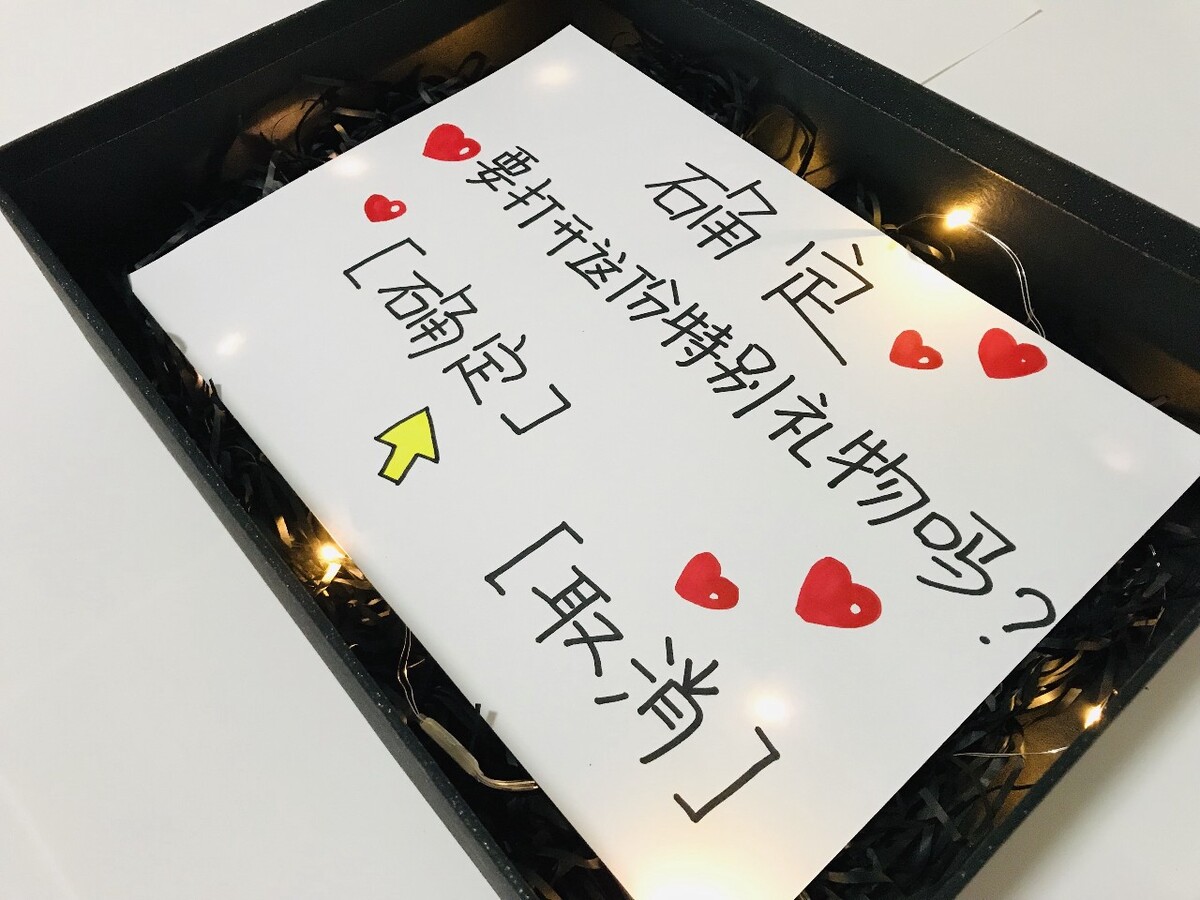 确定
要打开这份特别礼物吗?
[确定]
[取消]